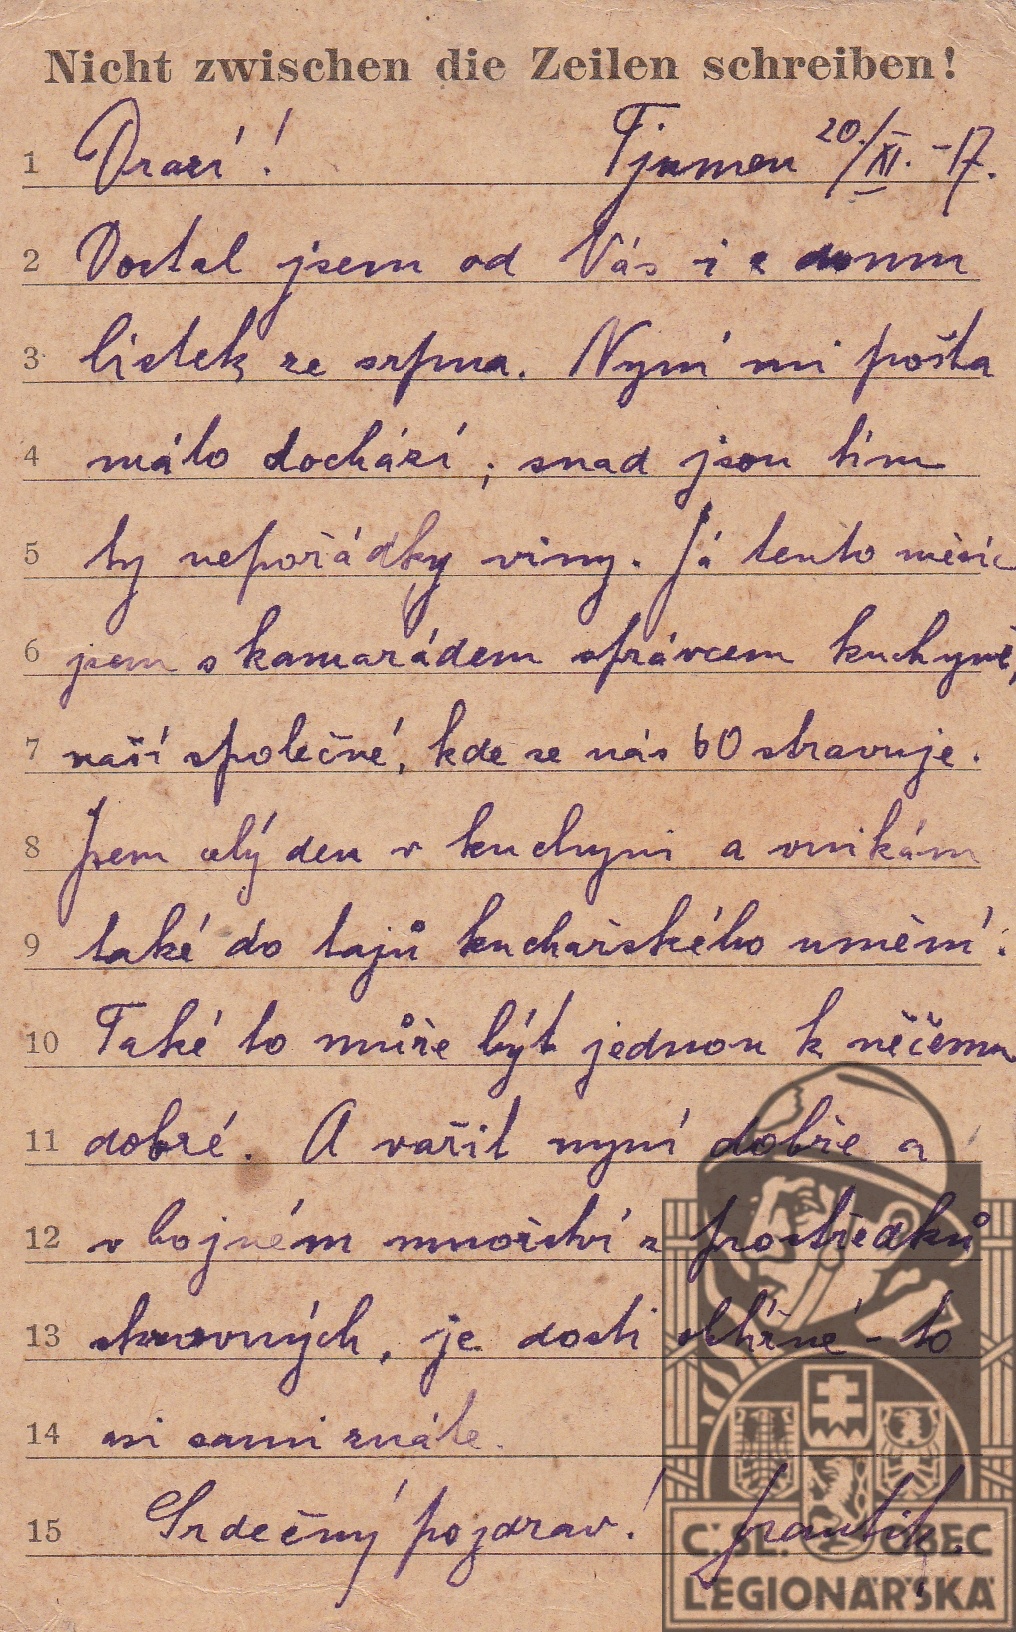 Nicht zwischen die Zeilen schreiben!
1 Drazí! Tjumen 20./XI. -17.
2 Dostal jsem od Vás i z domu
3 lístek ze srpna. Nyní mi pošta
4 málo dochází, snad jsou tím
5 ty nepořádky viny. Já tento měsíc
6 jsem s kamarádem správcem kuchyně,
7 naší společné, kde se nás 60 stravuje.
8 Jsem celý den v kuchyni a vnikám
9 také do tajů kuchařského umění.
10 Také to může být jednou k něčemu
11 dobré. A vařit nyní dobře a
12 v hojném množství z prostředků
13 skrovných, je dosti obtížné - to
14 asi sami znáte.
15 Srdečný pozdrav! Frantík.
Č. SL. OBEC
LEGIONÁŘSKÁ